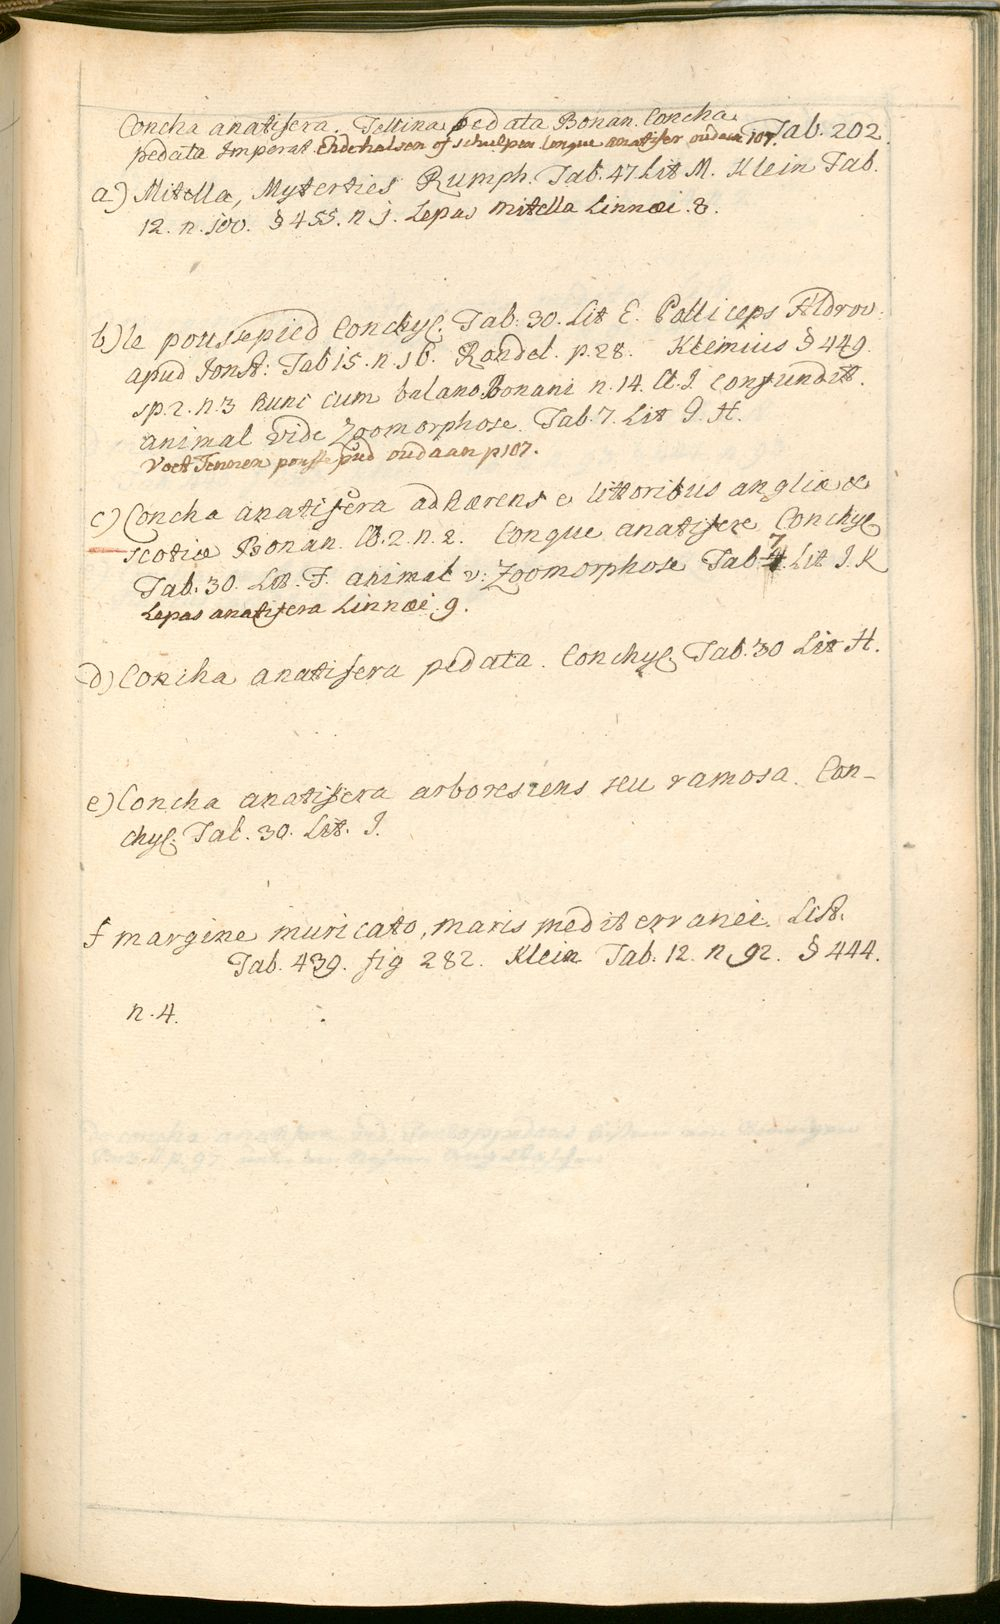 Concha anatifera. Tellina pedata Bonan. Concha
pedata Imperat. Endehalsen of schulpen Conque anatifer oudaan 107. Tab. 202
a.) Mitella, Myterties Rumph. Tab. 47 Lit M. Klein Tab.
12. n. 100. § 455. n j. Lepas mitella Linnæi. 8.
b) le poussepied Conchyl. Tab. 30. Lit E. Polliceps Aldrov.
apud Jonst: Tab 15. n. 16. Rondel. p. 28. Kleinius § 449.
sp. 2. n. 3 hunc cum balano Bonani n. 14. Cl. I. confundit.
animal vide Zoomorphose. Tab. 7. Lit G. H.
Voet Tennen pousse pied oudaan p 107.
c) Concha anatifera adhærens e littoribus angliæ &
scotiæ Bonan. Cl. 2. n. 2. Conque anatifere Conchyl
Tab. 30. Lit. F. animal v: Zoomorphose Tab. 7. Lit I. K
Lepas anatifera Linnæi. 9.
d) Concha anatifera pedata. Conchyl. Tab. 30 Lit H.
e) Concha anatifera arborescens seu ramosa. Con-
chyl. Tab. 30. Lit. I.
f margine muricato, maris mediterranei. List.
Tab. 439. fig 282. Klein Tab. 12. n 92. § 444.
n. 4.